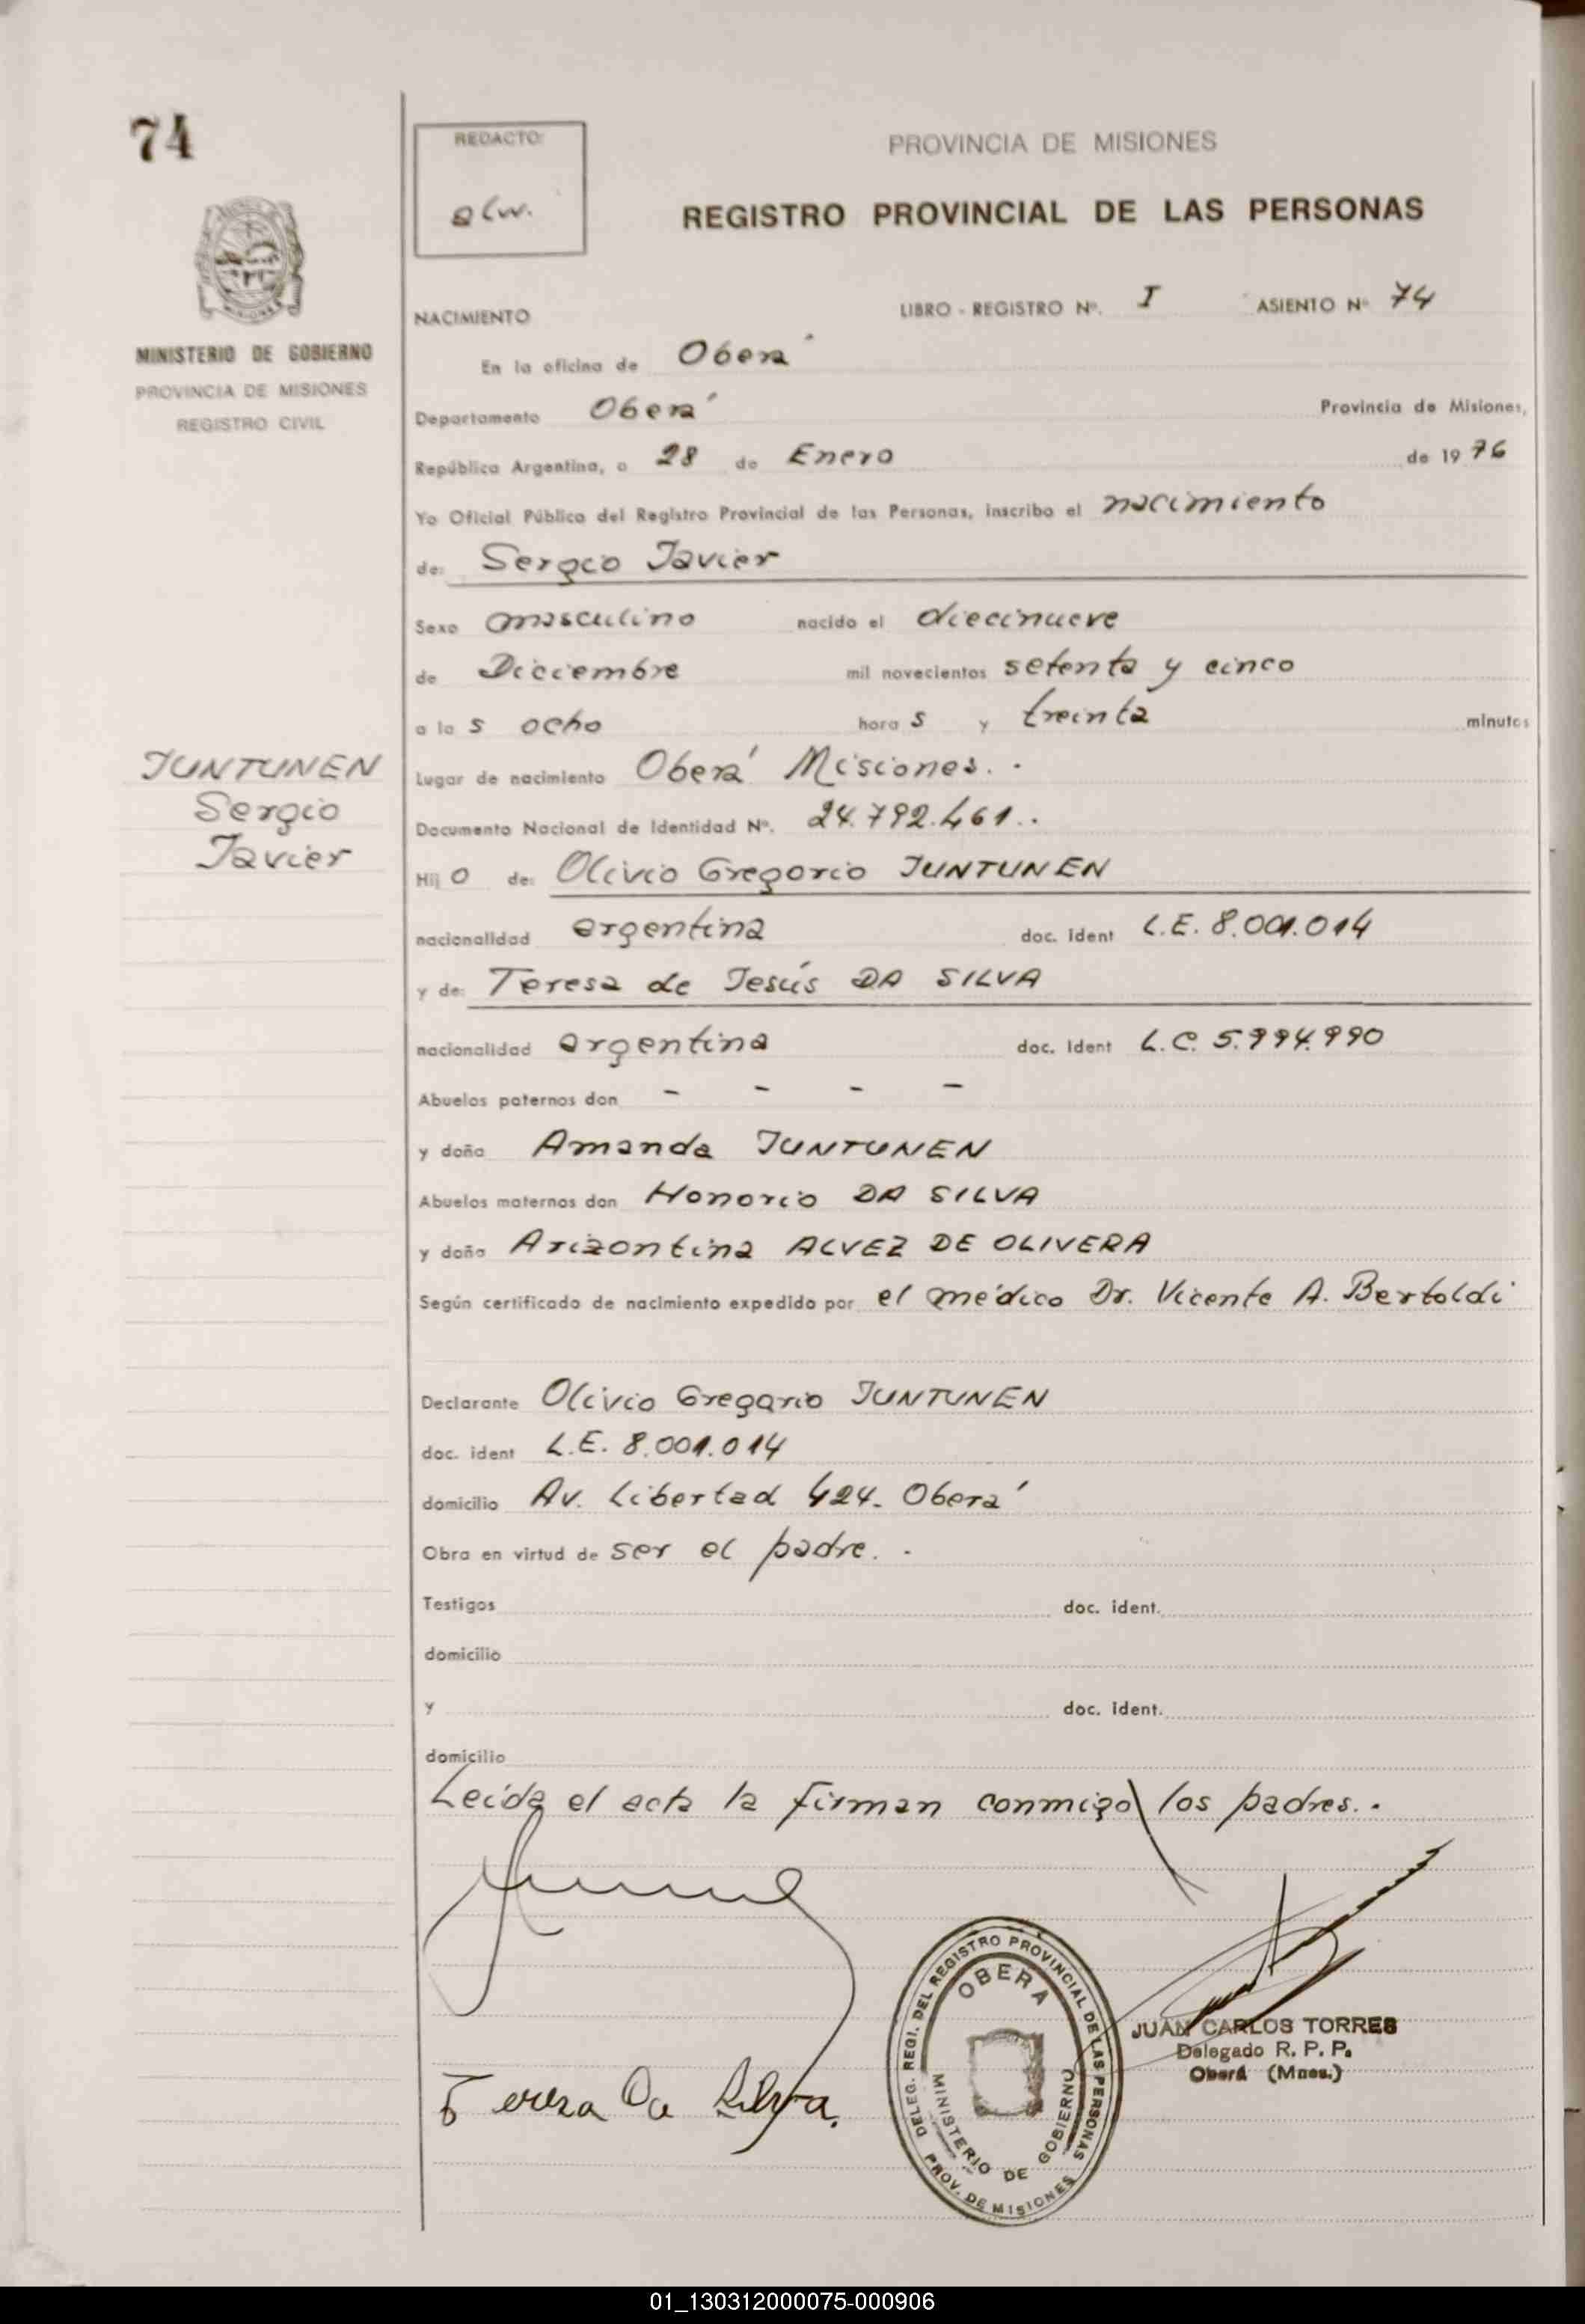 74
REDACTO:
PROVINCIA DE MISIONES
REGISTRO PROVINCIAL DE LAS PERSONAS
MINISTERIO DE GOBIERNO
PROVINCIA DE MISIONES
REGISTRO CIVIL
NACIMIENTO LIBRO - REGISTRO Nº. I ASIENTO Nº 74
En la oficina de Oberá
Departamento Oberá Provincia de Misiones,
República Argentina, a 28 de Enero de 1976
Yo Oficial Público del Registro Provincial de las Personas, inscribo el nacimiento
de: Sergio Javier
Sexo masculino nacido el diecinueve
de Diciembre mil novecientos setenta y cinco
a las ocho horas y treinta minutos
JUNTUNEN
Sergio
Javier
Lugar de nacimiento Oberá Misiones. -
Documento Nacional de Identidad Nº. 24.792.461.-
Hijo de: Olivio Gregorio JUNTUNEN
nacionalidad argentina doc. ident L.E. 8.001.014
y de: Teresa de Jesús DA SILVA
nacionalidad argentina doc. ident L.C. 5.994.990
Abuelos paternos don - - - -
y doña Amanda JUNTUNEN
Abuelos maternos don Honorio DA SILVA
y doña Arizontina ALVEZ DE OLIVERA
Según certificado de nacimiento expedido por el médico Dr. Vicente A. Bertoldi
Declarante Olivio Gregorio JUNTUNEN
doc. ident L.E. 8.001.014
domicilio Av. Libertad 424. Oberá
Obra en virtud de ser el padre. -
Testigos doc. ident.
domicilio
y doc. ident.
domicilio
Leída el acta la firman conmigo los padres. -
DELEG. REGI. DEL REGISTRO PROVINCIAL DE LAS PERSONAS
OBERA
MINISTERIO DE GOBIERNO
PROV. DE MISIONES
JUAN CARLOS TORRES
Delegado R. P. P.
Oberá (Mnes.)
Teresa Da Silva.
01_130312000075-000906